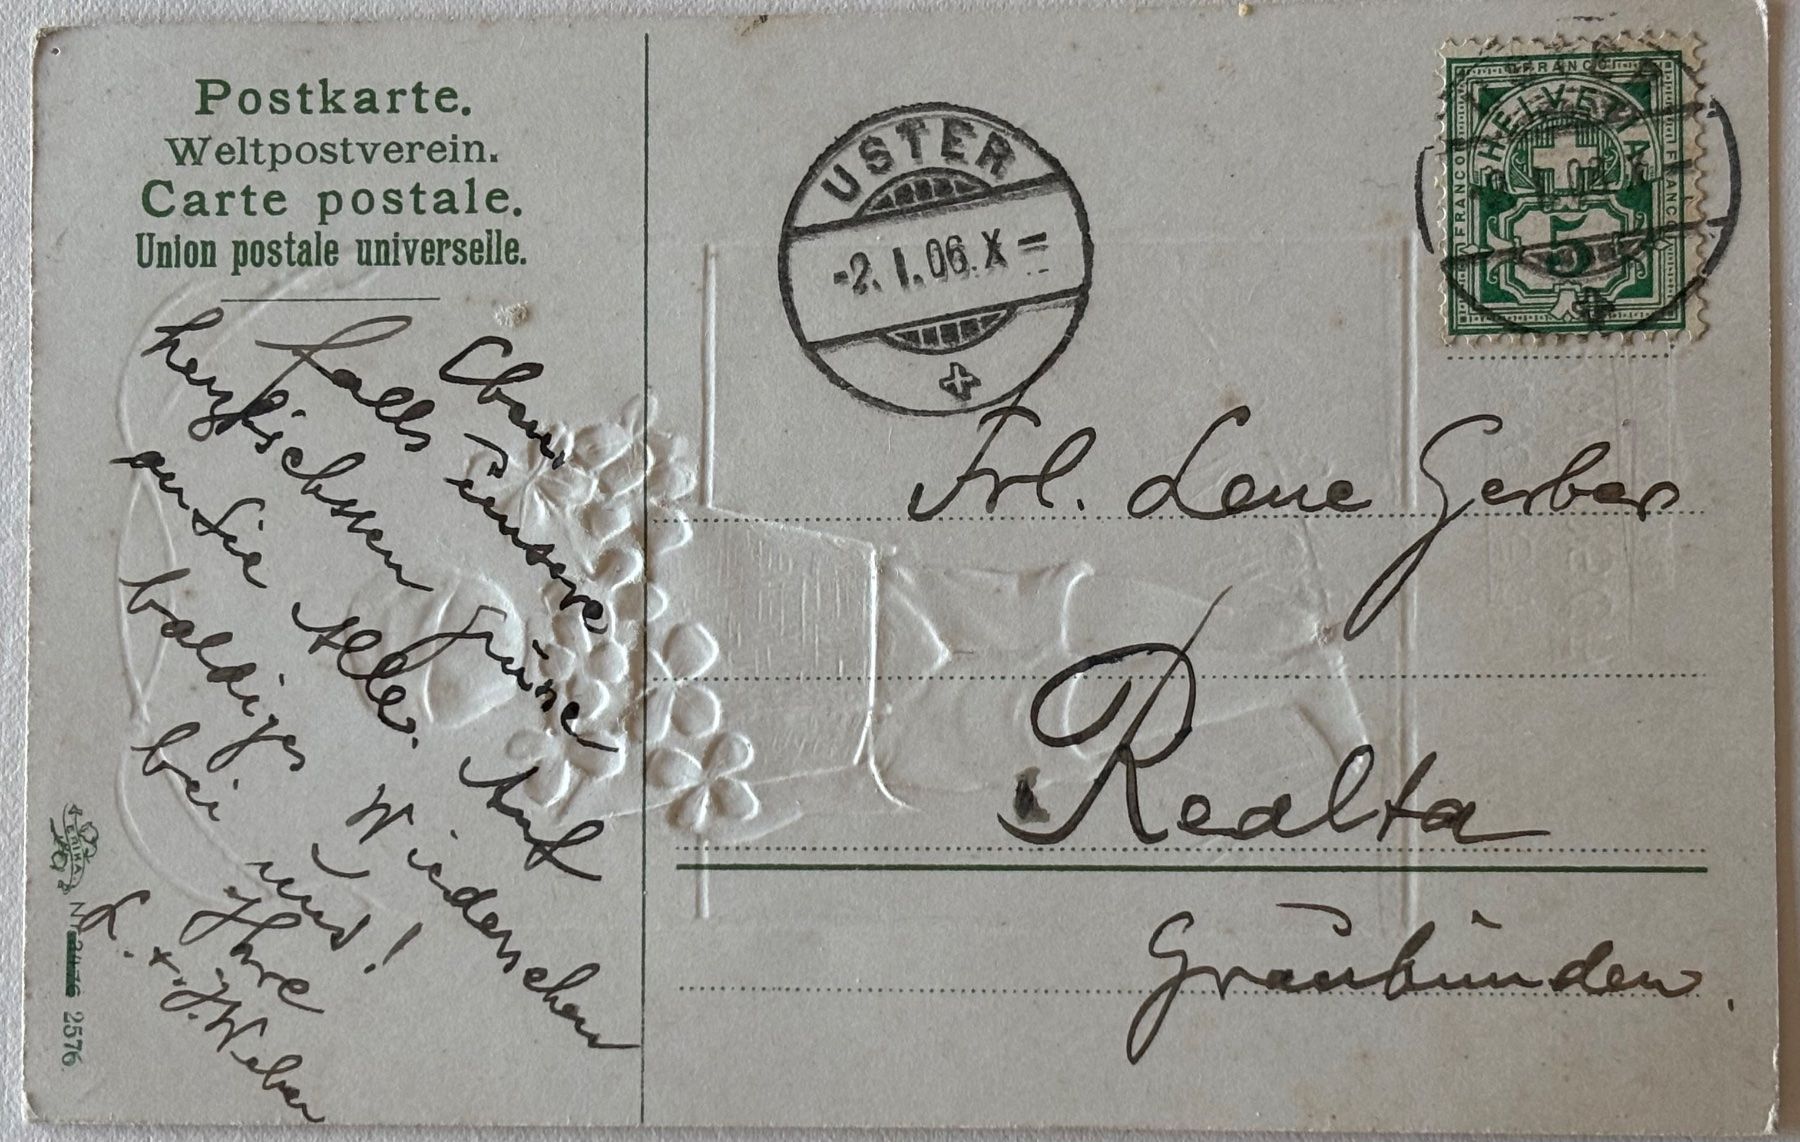 Postkarte.
Weltpostverein.
Carte postale.
Union postale universelle.
Eben
falls Unsere
herzlichsten Grüsse
an Sie Alle. Auf
baldiges Wiedersehen
bei uns!
Ihre
L. + J. Weber
ERIKA
Nr 2576
USTER
-2. I. 06. X =
FRANCO
HELVETIA
FRANCO
FRANCO
5
Frl. Lene Gerber
Realta
Graubünden.